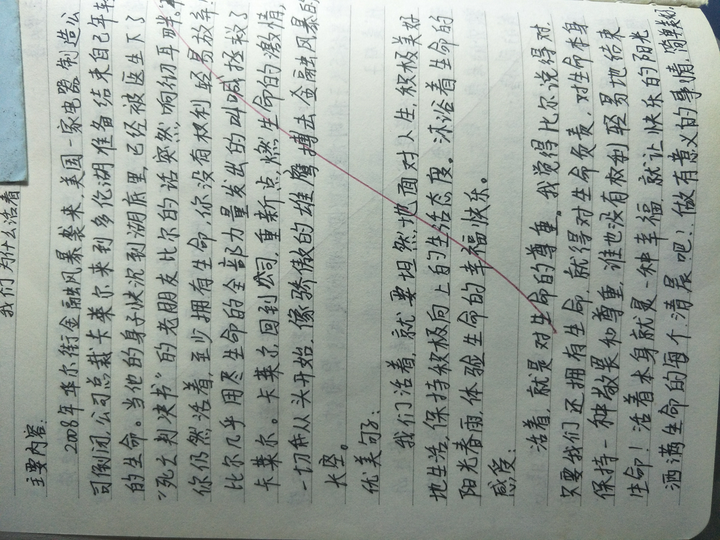 我们为什么活着
主要内容:
2008年华尔街金融风暴袭来,美国一家电器制造公
司倒闭,公司总裁卡莱尔来到多伦湖准备结束自己年轻
的生命。当他的身子快沉到湖底里,已经被医生下了
“死亡判决书”的老朋友比尔的话突然响彻耳畔:
你仍然活着,至少拥有生命,你没有权利轻易放弃!
比尔几乎用尽生命的全部力量发出的叫喊拯救了
卡莱尔。卡莱尔回到公司,重新点燃生命的激情,
一切再从头开始,像骄傲的雄鹰搏击金融风暴的
长空。
优美句子:
我们活着,就要坦然地面对人生,积极美好
地生活,保持积极向上的生活态度。沐浴着生命的
阳光春雨,体验生命的幸福快乐。
感受:
活着,就是对生命的尊重。我觉得比尔说得对
只要我们还拥有生命,就得对生命负责,对生命本身
保持一种敬畏和尊重,谁也没有权利轻易地结束
生命!活着本身就是一种幸福,就让快乐的阳光
洒满生命的每个清晨吧!做有意义的事情,简单